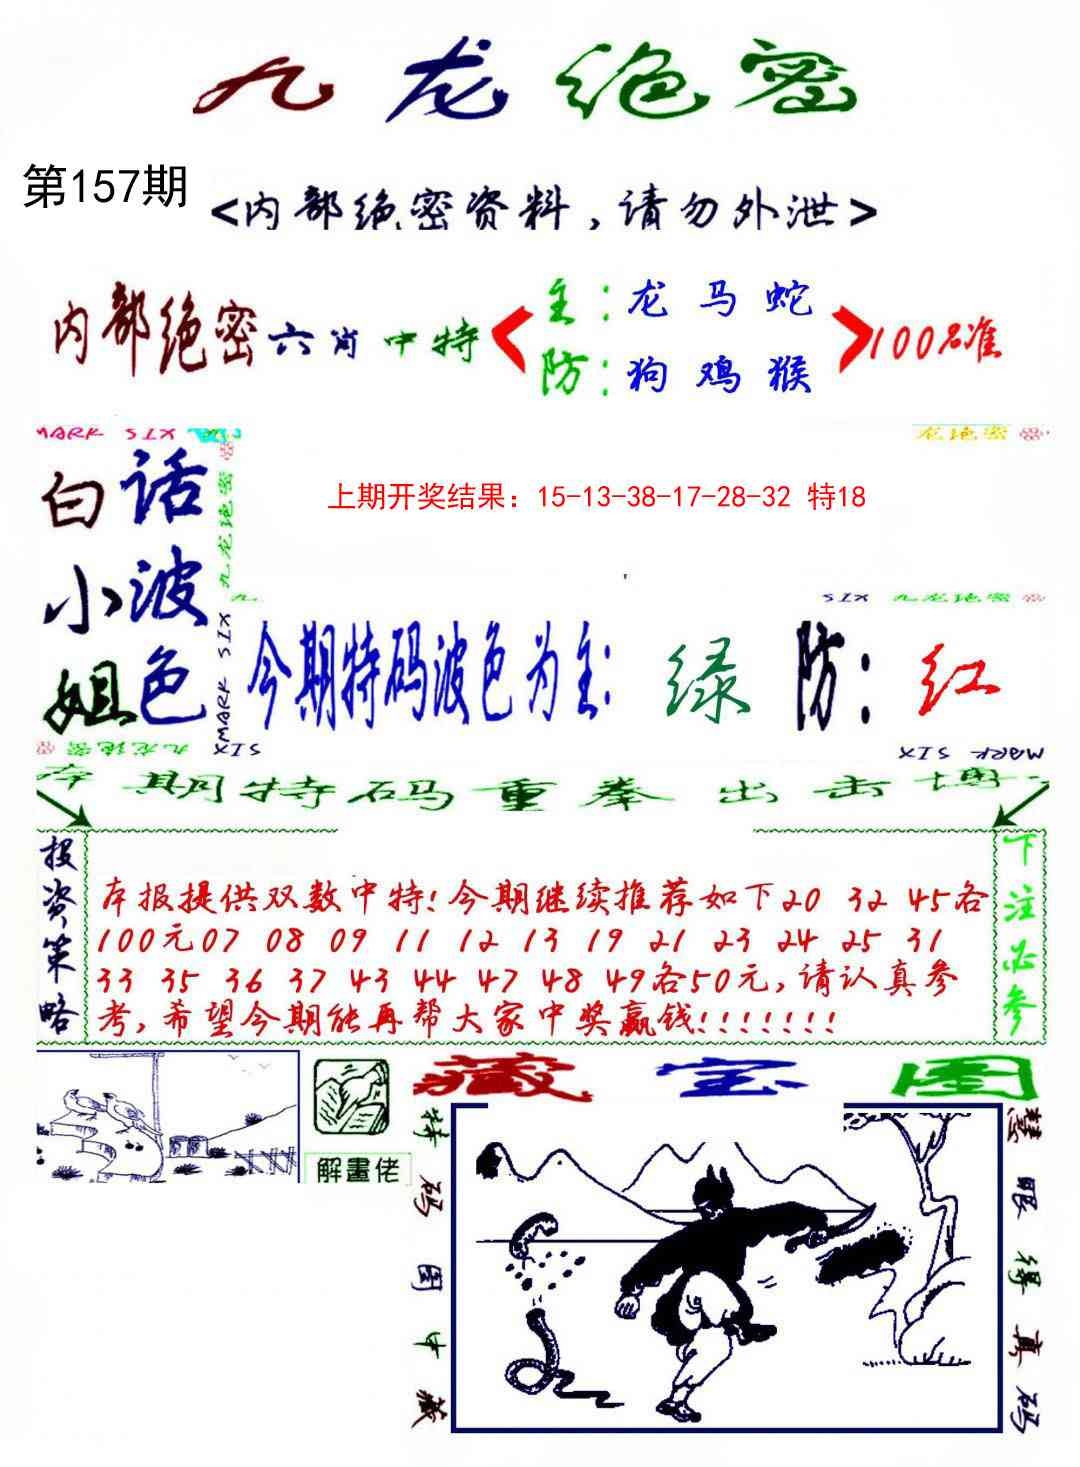 九龙绝密
第157期
<内部绝密资料，请勿外泄>
内部绝密六肖中特
主：龙 马 蛇
防：狗 鸡 猴
100%准
MARK SIX
九龙绝密
白话
小波
姐色
九龙绝密
MARK SIX
上期开奖结果：15-13-38-17-28-32 特18
SIX 九龙绝密
今期特码波色为主：绿 防：红
九龙绝密
SIX
MARK SIX
本期特码重拳出击博
投资策略
本报提供双数中特!今期继续推荐如下20 32 45各
100元07 08 09 11 12 13 19 21 23 24 25 31
33 35 36 37 43 44 47 48 49各50元,请认真参
考,希望今期能再帮大家中奖赢钱!!!!!!!
下注必参
藏宝图
解畫佬
特码图中藏
慧眼得真码